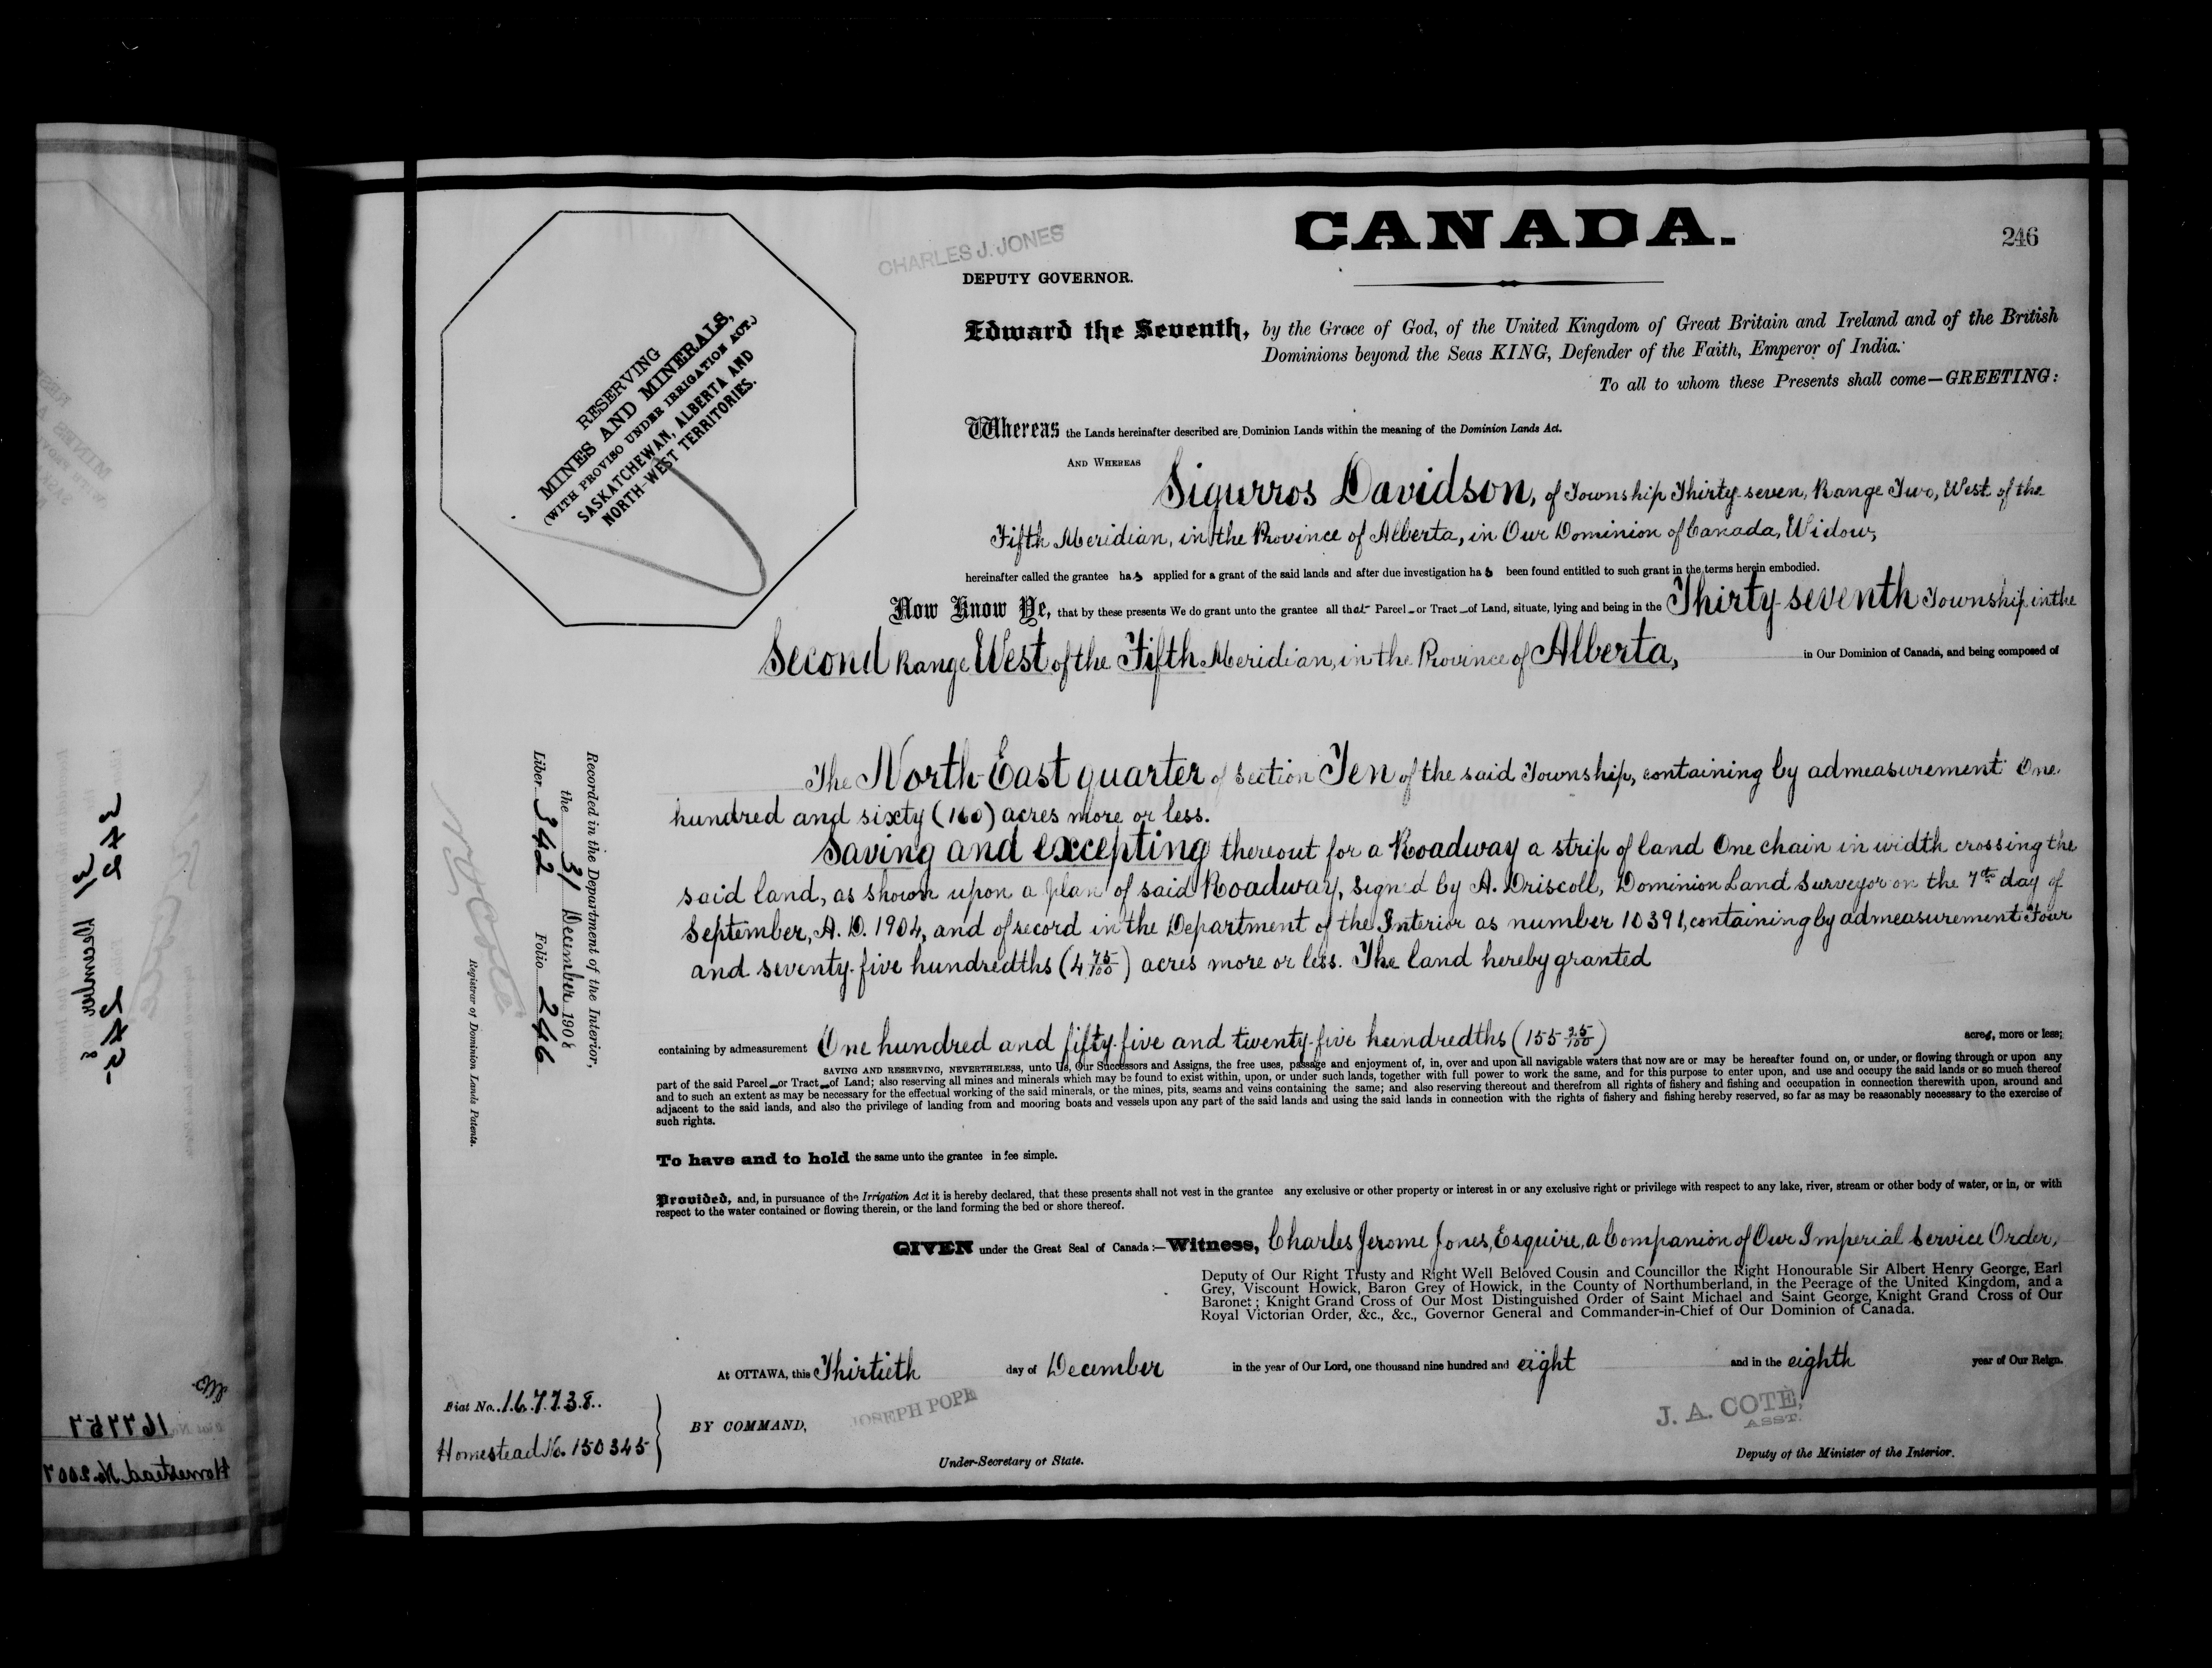 CANADA.
246
CHARLES J. JONES
DEPUTY GOVERNOR.
RESERVING
MINES AND MINERALS,
(WITH PROVISO UNDER IRRIGATION ACT.)
SASKATCHEWAN, ALBERTA AND
NORTH-WEST TERRITORIES.
Edward the Seventh, by the Grace of God, of the United Kingdom of Great Britain and Ireland and of the British
Dominions beyond the Seas KING, Defender of the Faith, Emperor of India.
To all to whom these Presents shall come—GREETING:
Whereas the Lands hereinafter described are Dominion Lands within the meaning of the Dominion Lands Act.
AND WHEREAS
Sigurros Davidson, of Township Thirty-seven, Range Two, West of the
Fifth Meridian, in the Province of Alberta, in Our Dominion of Canada, Widow,
hereinafter called the grantee has applied for a grant of the said lands and after due investigation has been found entitled to such grant in the terms herein embodied.
Now Know Ye, that by these presents We do grant unto the grantee all that Parcel or Tract of Land, situate, lying and being in the Thirty-seventh Township in the
Second Range West of the Fifth Meridian, in the Province of Alberta, in Our Dominion of Canada, and being composed of
The North East quarter of section Ten of the said Township, containing by admeasurement One
hundred and sixty (160) acres more or less.
Saving and excepting thereout for a Roadway a strip of land One chain in width crossing the
said land, as shown upon a plan of said Roadway, signed by A. Driscoll, Dominion Land Surveyor on the 7th day of
September, A. D. 1904, and of record in the Department of the Interior as number 10391, containing by admeasurement Four
and seventy-five hundredths (4 75/100) acres more or less. The land hereby granted
containing by admeasurement One hundred and fifty-five and twenty-five hundredths (155 25/100) acres, more or less;
SAVING AND RESERVING, NEVERTHELESS, unto Us, Our Successors and Assigns, the free uses, passage and enjoyment of, in, over and upon all navigable waters that now are or may be hereafter found on, or under, or flowing through or upon any
part of the said Parcel or Tract of Land; also reserving all mines and minerals which may be found to exist within, upon, or under such lands, together with full power to work the same, and for this purpose to enter upon, and use and occupy the said lands or so much thereof
and to such an extent as may be necessary for the effectual working of the said minerals, or the mines, pits, seams and veins containing the same; and also reserving thereout and therefrom all rights of fishery and fishing and occupation in connection therewith upon, around and
adjacent to the said lands, and also the privilege of landing from and mooring boats and vessels upon any part of the said lands and using the said lands in connection with the rights of fishery and fishing hereby reserved, so far as may be reasonably necessary to the exercise of
such rights.
To have and to hold the same unto the grantee in fee simple.
Provided, and, in pursuance of the Irrigation Act it is hereby declared, that these presents shall not vest in the grantee any exclusive or other property or interest in or any exclusive right or privilege with respect to any lake, river, stream or other body of water, or in, or with
respect to the water contained or flowing therein, or the land forming the bed or shore thereof.
GIVEN under the Great Seal of Canada:—Witness, Charles Jerome Jones, Esquire, a Companion of Our Imperial Service Order,
Deputy of Our Right Trusty and Right Well Beloved Cousin and Councillor the Right Honourable Sir Albert Henry George, Earl
Grey, Viscount Howick, Baron Grey of Howick, in the County of Northumberland, in the Peerage of the United Kingdom, and a
Baronet; Knight Grand Cross of Our Most Distinguished Order of Saint Michael and Saint George, Knight Grand Cross of Our
Royal Victorian Order, &c., &c., Governor General and Commander-in-Chief of Our Dominion of Canada.
At OTTAWA, this Thirtieth day of December in the year of Our Lord, one thousand nine hundred and eight and in the eighth year of Our Reign.
JOSEPH POPE
J. A. COTÉ,
ASST.
BY COMMAND,
Under-Secretary of State.
Deputy of the Minister of the Interior.
Fiat No. 167738
Homestead No. 150345
Recorded in the Department of the Interior,
the 31 December 1908
Liber 342 Folio 246
N. O. Coté
Registrar of Dominion Lands Patents.
342
31 December 8
167757
Homestead No. 2007